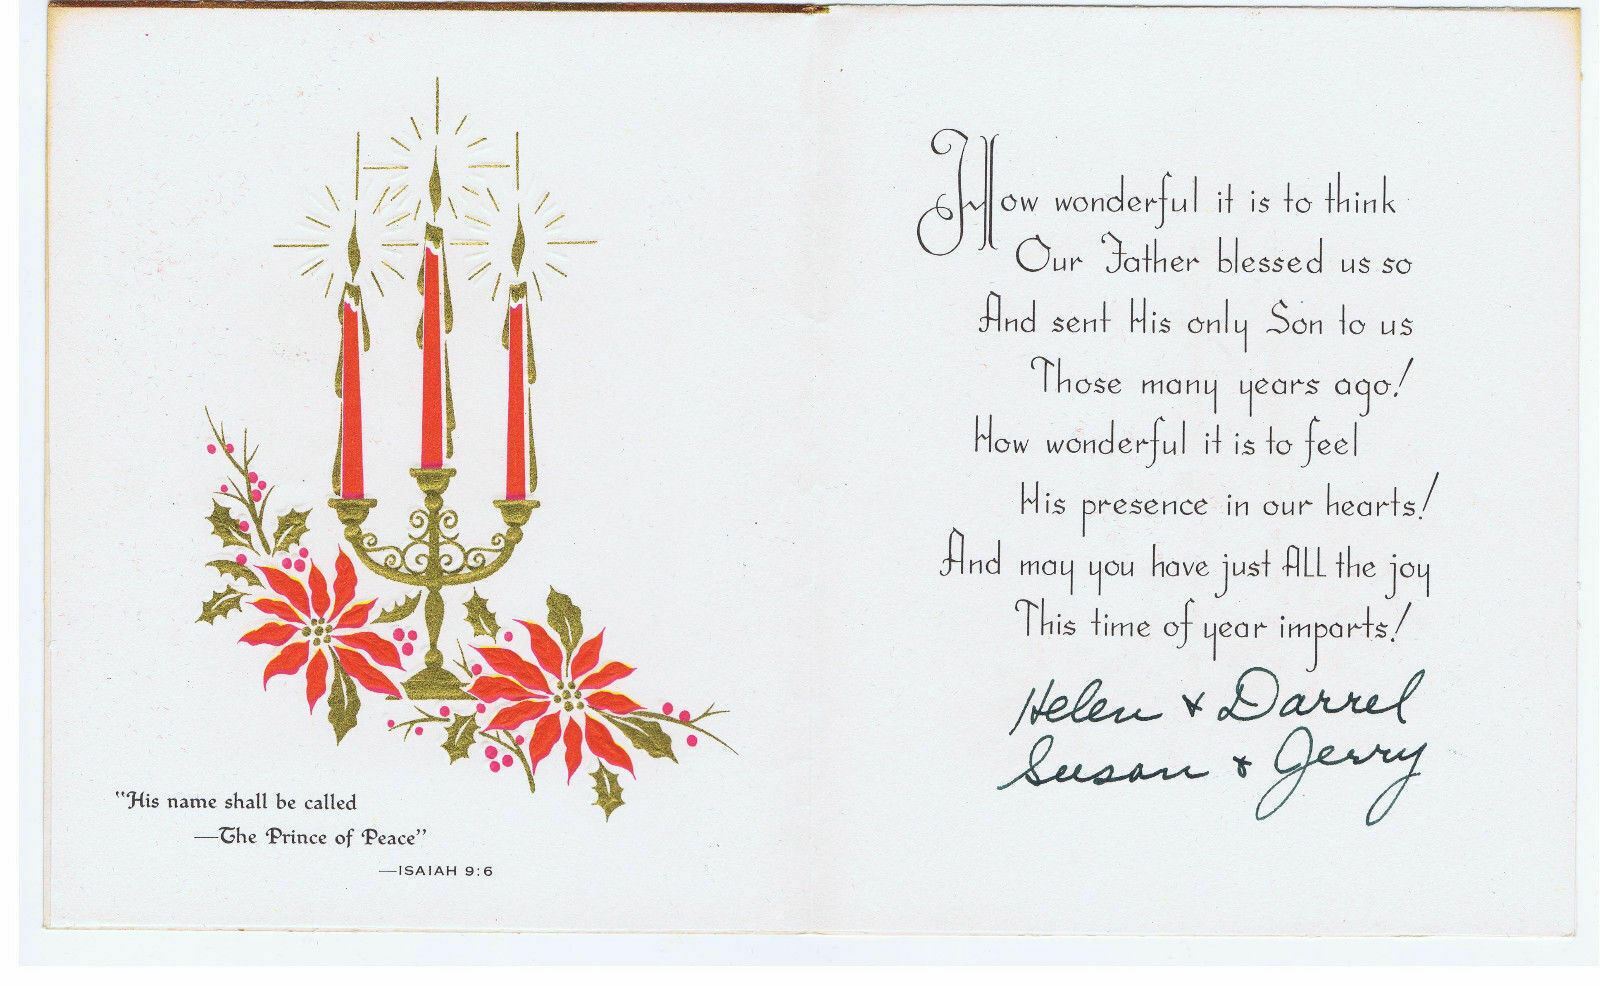 "His name shall be called
—The Prince of Peace"
—ISAIAH 9:6
How wonderful it is to think
Our Father blessed us so
And sent His only Son to us
Those many years ago!
How wonderful it is to feel
His presence in our hearts!
And may you have just ALL the joy
This time of year imparts!
Helen & Darrel
Susan & Jerry